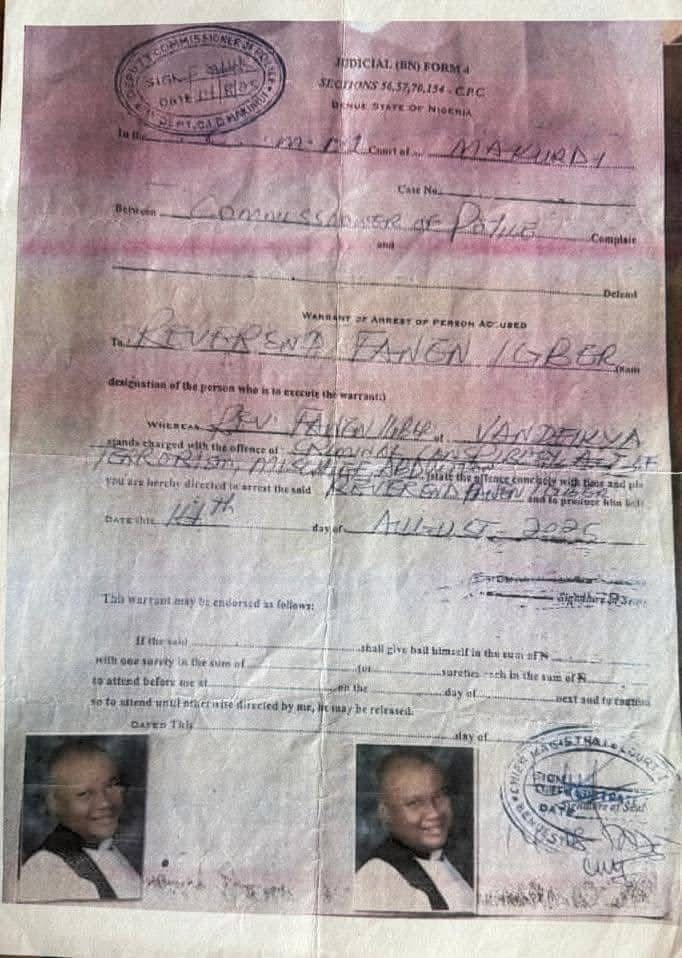 DEPUTY COMMISSIONER OF POLICE
SIGN
DATE 14/8/25
DEPT. C.I.D MAKURDI
JUDICIAL (BN) FORM 4
SECTIONS 56,57,70,154 - C.P.C
BENUE STATE OF NIGERIA
In the Court of MAKURDI
Case No.
Between COMMISSIONER OF POLICE Complain
and
Defend
WARRANT OF ARREST OF PERSON ACCUSED
To REVEREND FANEN IGBER (Nam
designation of the person who is to execute the warrant:)
WHEREAS REV. FANEN IGBER of VANDEIKYA
stands charged with the offence of CRIMINAL CONSPIRACY, ACT OF
TERRORISM, (state the offence concisely with time and pla
you are hereby directed to arrest the said REVEREND FANEN IGBER and to produce him bef
DATE this 14th day of AUGUST 2025
Signature of Seal
This warrant may be endorsed as follows:
If the said shall give bail himself in the sum of ₦
with one surety in the sum of (or sureties each in the sum of ₦
to attend before me at on the day of next and to
so to attend until otherwise directed by me, he may be released.
DATED This day of
CHIEF MAGISTRATE COURT 1
SIGN
DATE
Signature of Seal